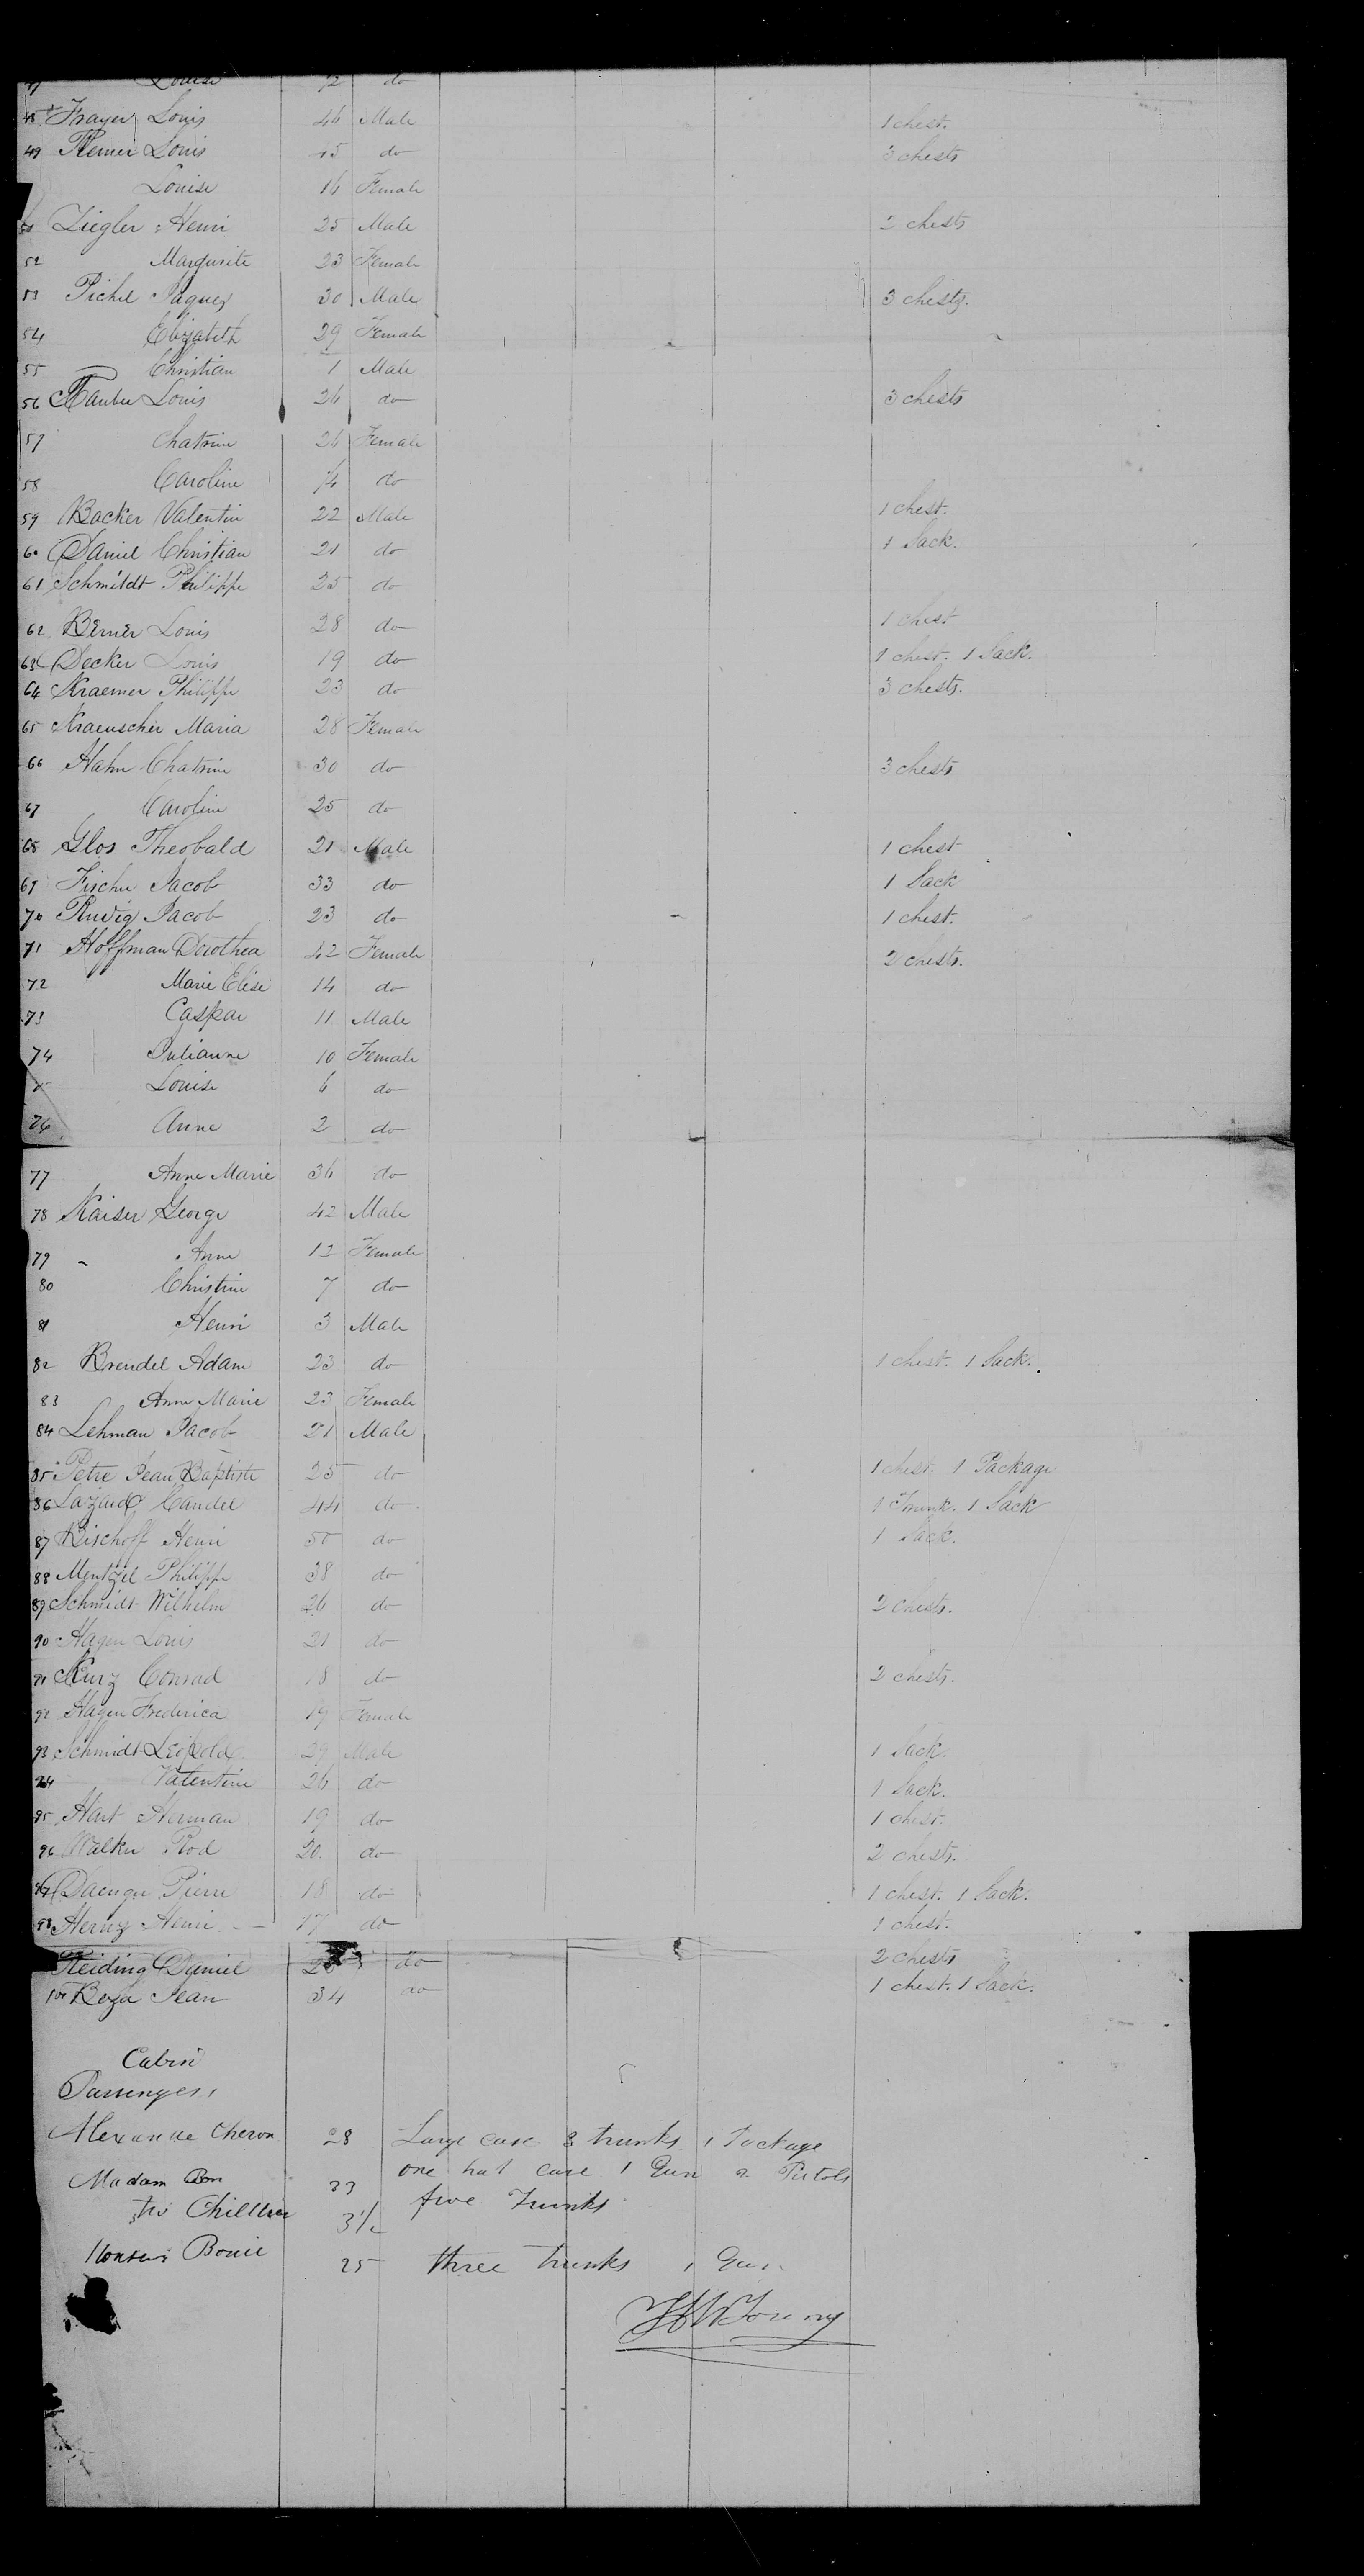 47 Louise 12 do
48 Frayer Louis 46 Male 1 chest.
49 Remer Louis 45 do 3 chests
Louise 16 Female
Ziegler Henri 25 Male 2 chests
52 Marguerite 23 Female
53 Pichel Jaques 30 Male 3 chests.
54 Elizabeth 29 Female
55 Christian 1 Male
56 Tauber Louis 26 do 3 chests
57 Chatrine 26 Female
58 Caroline do
59 Backer Valentin 22 Male 1 chest.
60 Daniel Christian 21 do 1 Sack.
61 Schmildt Philippe 25 do
62 Berner Louis 28 do 1 chest
63 Decker Louis 19 do 1 chest. 1 Sack.
64 Kraemer Philippe 23 do 3 chests.
65 Kraeuscher Maria 28 Female
66 Hahn Chatrine 30 do 3 chests
67 Caroline 25 do
68 Glos Theobald 21 Male 1 chest
69 Fischer Jacob 33 do 1 Sack
70 Ruvig Jacob 23 do 1 chest.
71 Hoffman Dorothea 42 Female 2 chests.
72 Marie Elise 14 do
73 Caspar 11 Male
74 Julianne 10 Female
Louise 6 do
76 Anne 2 do
77 Anne Marie 36 do
78 Kaiser George 42 Male
79 - Anne 12 Female
80 Christine 7 do
81 Henri 3 Male
82 Brendel Adam 23 do 1 chest. 1 Sack.
83 Anne Marie 23 Female
84 Lehman Jacob 21 Male
85 Petre Jean Baptiste 25 do 1 chest. 1 Package
86 Lazard Candel 44 do 1 Trunk. 1 Sack
87 Bischoff Henri 50 do 1 Sack.
88 Mentzel Philippe 38 do
89 Schmidt Wilhelm 26 do 2 chests.
90 Hagen Louis 21 do
91 Kurz Conrad 18 do 2 chests.
92 Hagen Frederica 19 Female
93 Schmidt Leopold 29 Male 1 Sack.
94 Valentine 26 do 1 Sack.
95 Hart Herman 19 do 1 chest.
96 Walker Rod 20. do 2 chests.
97 Daenger Pierre 18 do 1 chest. 1 Sack.
98 Henry Henri 17 do 1 chest.
Reiding Daniel do 2 chests
100 Boza Jean 34 do 1 chest. 1 Sack.
Cabin
Passengers
Alexandre Cheron 28 Large case 3 trunks 1 Package
one hat case 1 Gun 2 Pistols
Madam Bon 33 five Trunks
two Children 3 1/2
Bonie 25 three trunks 1 Gun
Young